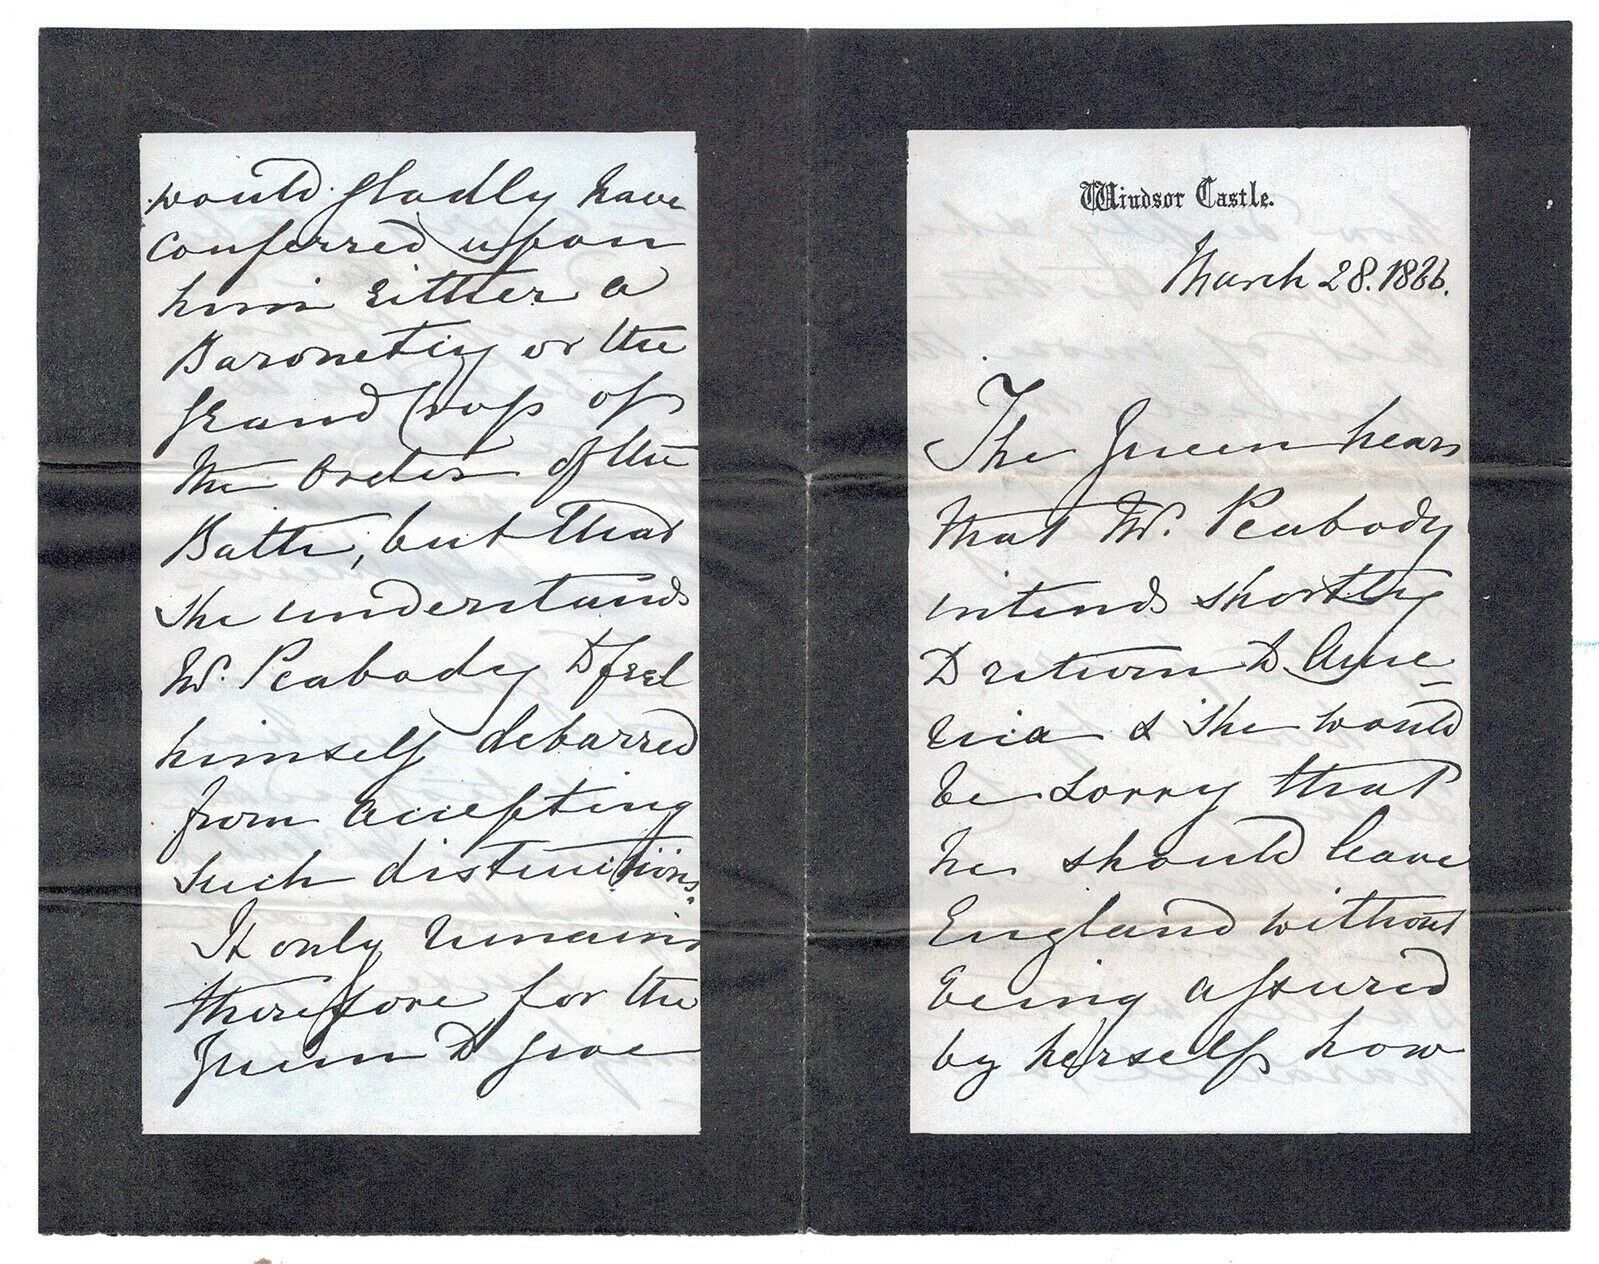 Windsor Castle.
March 28. 1866.
The Queen hears
that Mr. Peabody
intends shortly
to return to Ame=
rica & she would
be sorry that
he should leave
England without
being assured
by herself how
would gladly have
conferred upon
him either a
Baronetcy or the
Grand Cross of
the Order of the
Bath, but that
she understands
Mr. Peabody to feel
himself debarred
from accepting
such distinctions.
It only remains
therefore for the
Queen to give